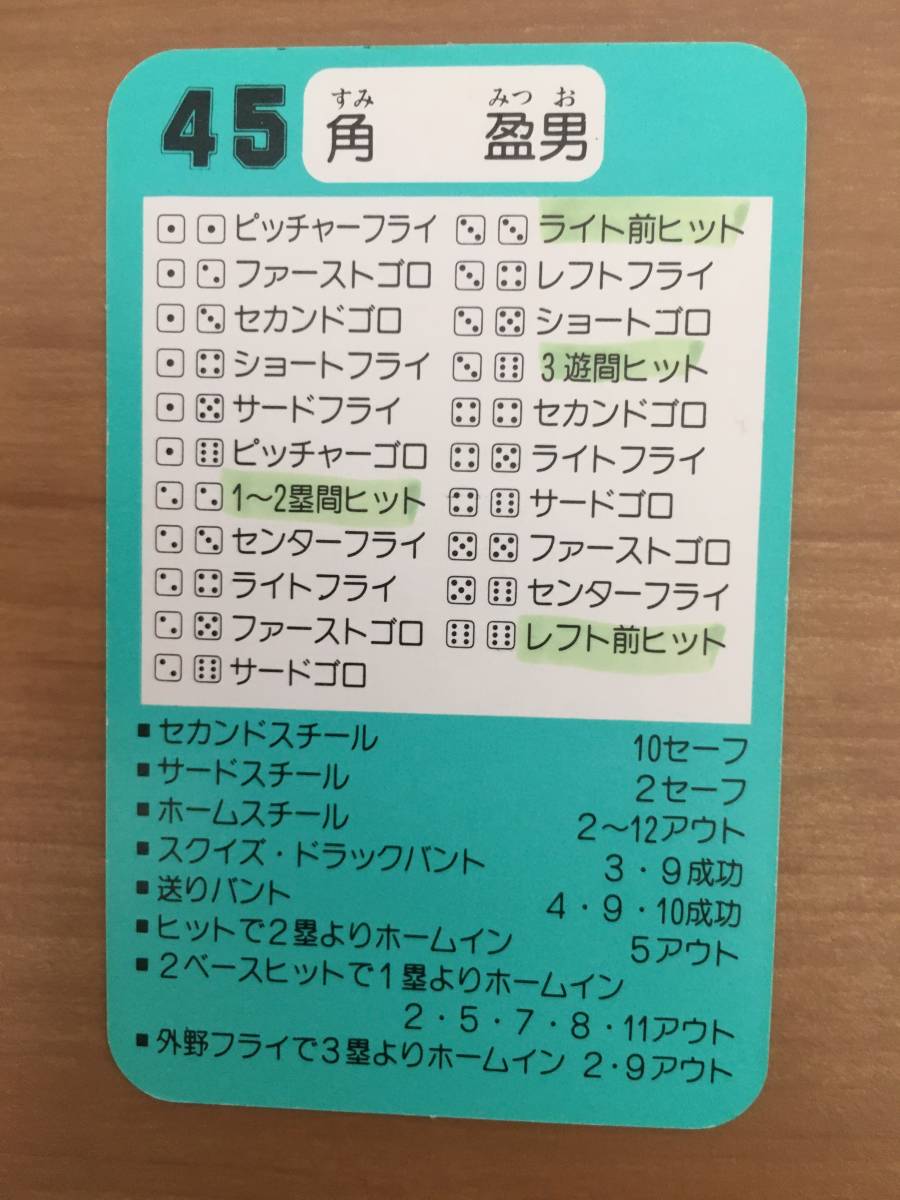 45
すみ みつ お
角 盈男
⚀ ⚀ ピッチャーフライ
⚀ ⚁ ファーストゴロ
⚀ ⚂ セカンドゴロ
⚀ ⚃ ショートフライ
⚀ ⚄ サードフライ
⚀ ⚅ ピッチャーゴロ
⚁ ⚁ 1〜2塁間ヒット
⚁ ⚂ センターフライ
⚁ ⚃ ライトフライ
⚁ ⚄ ファーストゴロ
⚁ ⚅ サードゴロ
⚂ ⚂ ライト前ヒット
⚂ ⚃ レフトフライ
⚂ ⚄ ショートゴロ
⚂ ⚅ 3遊間ヒット
⚃ ⚃ セカンドゴロ
⚃ ⚄ ライトフライ
⚃ ⚅ サードゴロ
⚄ ⚄ ファーストゴロ
⚄ ⚅ センターフライ
⚅ ⚅ レフト前ヒット
■セカンドスチール 10セーフ
■サードスチール 2セーフ
■ホームスチール 2〜12アウト
■スクイズ・ドラックバント 3・9成功
■送りバント 4・9・10成功
■ヒットで2塁よりホームイン 5アウト
■2ベースヒットで1塁よりホームイン
2・5・7・8・11アウト
■外野フライで3塁よりホームイン 2・9アウト